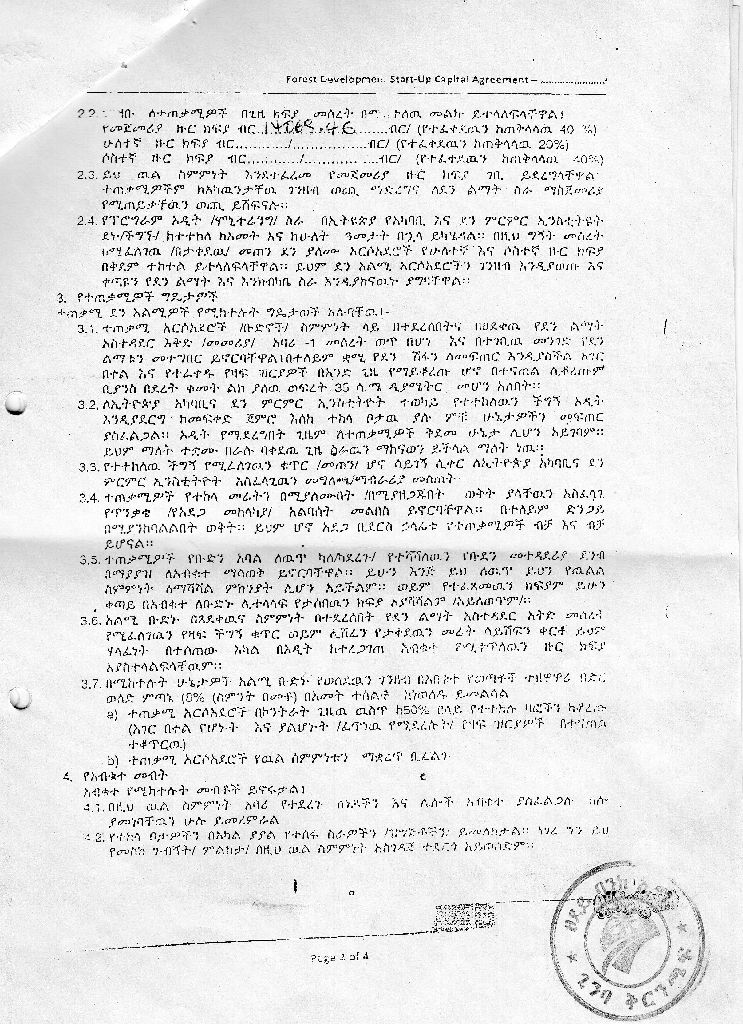 Forest Development Start-Up Capital Agreement –
2.2. ለተጠቃሚዎች በጊዜ ክፍያ መሰረት መልክ ይተላለፍላቸዋል፤
የመጀመሪያ ዙር ክፍያ ብር ብር/ (የተፈቀደዉን ከጠቅላላዉ 40 %)
ሁለተኛ ዙር ክፍያ ብር............/..................ብር/ (የተፈቀደዉን ከጠቅላላዉ 20%)
ሶስተኛ ዙር ክፍያ ብር............/............ ....ብር/ (የተፈቀደዉን ከጠቅላላዉ 40%)
2.3. ይህ ዉል ስምምነት እንደተፈረመ የመጀመሪያ ዙር ክፍያ ገቢ ይደረግላቸዋል
ተጠቃሚዎችም ከአካዉንታቸዉ ገንዘብ ወጪ ለደን ልማት ስራ ማስጀመሪያ
የሚጠይቃቸዉን ወጪ ይሸፍናሉ፡፡
2.4. የፕሮግራም ኦዲት /ሞኒተሪንግ/ ስራ በኢትዮጵያ የአካባቢ እና ደን ምርምር ኢንስቲትዩት
ደኑ/ችግኙ/ ከተተከለ ከአመት እና ከሁለት ዓመታት በኋላ ይካሄዳል፡፡ በዚህ ግኝት መሰረት
መጠን ደን ያለሙ አርሶአደሮች የሁለተኛ እና ሶስተኛ ዙር ክፍያ
በቅደም ተከተል ይተላለፍላቸዋል፡፡ ይህም ደን አልሚ አርሶአደሮችን ገንዘብ እንዲያወጡ እና
ቀጣዩን የደን ልማት እና እንክብካቤ ስራ እንዲያከናዉኑ ያግዛቸዋል፡፡
3. የተጠቃሚዎች ግዴታዎች
ተጠቃሚ ደን አልሚዎች የሚከተሉት ግዴታወች አሉባቸዉ፡-
3.1. ተጠቃሚ አርሶአደሮች /ቡድኖች/ ስምምነት ላይ በተደረሰበትና በፀደቀዉ የደን ልማት
አስተዳደር እቅድ /መመሪያ/ አባሪ -1 መሰረት ወጥ በሆነ እና በተገቢዉ መንገድ የደን
ልማቱን መተግበር ይኖርባቸዋል፤በተለይም ቋሚ የደን ሽፋን ለመፍጠር እንዲያስችል አገር
በቀል እና የተፈቀዱ የዛፍ ዝርያዎች በአንድ ጊዜ የማይቆረጡ ሆኖ በተናጠል ሲቆረጡም
ቢያንስ በደረት ቁመት ልክ ያለዉ ወፍረት 35 ሳ.ሜ ዲያሜትር መሆን አለበት፡፡
3.2. ለኢትዮጵያ አካባቢና ደን ምርምር ኢንስቲትዩት ተወካይ የተተከለዉን ችግኝ ኦዲት
እንዲያደርግ ከመፍቀድ ጀምሮ እስከ ተከላ ቦታዉ ያሉ ምቹ ሁኔታዎችን መፍጠር
ያስፈልጋል፡፡ ኦዲት የሚደረግበት ጊዜም ለተጠቃሚዎች ቅድመ ሁኔታ ሊሆን አይገባም፡፡
ይህም ማለት ተቋሙ በራሱ ባቀደዉ ጊዜ ስራዉን ማከናወን ይችላል ማለት ነዉ፡፡
3.3. የተተከለዉ ችግኝ የሚፈለገዉን ቁጥር /መጠን/ ሆኖ ሳይገኝ ሲቀር ለኢትዮጵያ አካባቢና ደን
ምርምር ኢንስቲትዩት አስፈላጊዉን መግለጫ/ማብራሪያ መስጠት
3.4. ተጠቃሚዎች የተከላ መሬትን በሚያለሙበት /በሚያዘጋጁበት ወቅት ያላቸዉን አስፈላጊ
የጥንቃቄ /የአደጋ መከላከያ/ አልባሳት መልበስ ይኖርባቸዋል፡፡ በተለይም ድንጋይ
በሚያንከባልልበት ወቅት፡፡ ይህም ሆኖ አደጋ ቢደርስ ኃላፊቱ የተጠቃሚዎች ብቻ እና ብቻ
ይሆናል፡፡
3.5. ተጠቃሚዎች የቡድን አባል ለዉጥ ካለ የቡድን መተዳደሪያ ደንብ
በማያያዝ ለአብቁተ ማሳወቅ ይኖርባቸዋል፡፡ ይሁን እንጅ ይህ ለዉጥ ይህን የዉል
ስምምነት ለማሻሻል ምክንያት ሊሆን አይችልም፡፡ ወይም የተፈጸመዉን ክፍያም ይሁን
ቀጣይ በአብቁተ ለቡድኑ ሊተላለፍ የታሰበዉን ክፍያ አያሻሽልም /አይለዉጥም/፡፡
3.6. አልሚ ቡድኑ በጸደቀዉና ስምምነት በተደረሰበት የደን ልማት አስተዳደር እቅድ መሰረት
የሚፈለገዉን የዛፍ ችግኝ ቁጥር ወይም ሊሸፈን የታቀደዉን መሬት ሳይሸፍን ቀርቶ ይህም
ሃላፊነት በተሰጠው አካል በኦዲት ከተረጋገጠ አብቁተ የሚቀጥለዉን ዙር ክፍያ
አያስተላልፍላቸዉም፡፡
3.7. በሚከተሉት ሁኔታዎች አልሚ ቡድኑ የወሰደዉን ገንዘብ በአብቁተ የወጣቶች ተዘዋዋሪ ብድር
ወለድ ምጣኔ (8% (ስምንት በመቶ) በአመት ተሰልቶ እንዲመልሱ ይመልሳል
a) ተጠቃሚ አርሶአደሮች በኮንትራት ጊዜዉ ዉስጥ ከ50% በላይ የተተከሉ ዛፎችን ከቆረጡ
(አገር በቀል የሆኑት እና ያልሆኑት /ፈጥነዉ የሚደረሱት/ የዛፍ ዝርያዎች በተናጠል
ተቆጥረዉ)
b) ተጠቃሚ አርሶአደሮች የዉል ስምምነቱን ማቋረጥ ቢፈልጉ
4. የአብቁተ መብት
አብቁተ የሚከተሉት መብቶች ይኖሩታል፤
4.1. በዚህ ዉል ስምምነት አባሪ የተደረጉ ሰነዶችን እና ሌሎች አብቁተ ያስፈልጋሉ ብሎ
ያመነባቸዉን ሁሉ ይመረምራል
4.2. የተከላ ቦታዎችን በአካል ያያል የተሰሩ ስራዎችን ይመለከታል፡፡ ነገር ግን ይህ
የመስክ ጉብኝት/ ምልከታ/ በዚህ ዉል ስምምነት አስገዳጅ ተደርጎ አይወሰድም፡፡
Page 2 of 4
ቅርንጫፍ